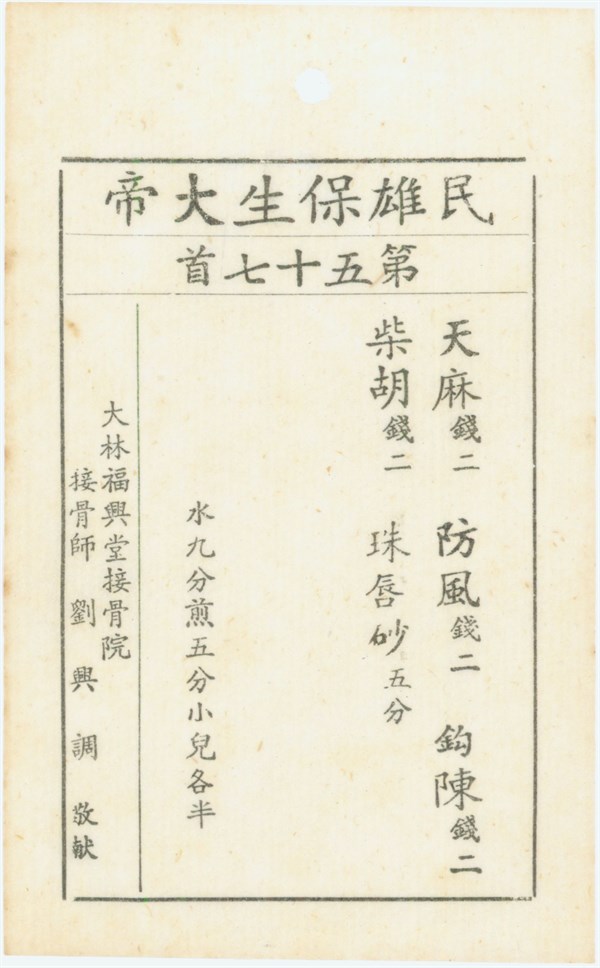 民雄保生大帝
第五十七首
天麻錢二 防風錢二 鈎陳錢二
柴胡錢二 珠唇砂五分
水九分煎五分小兒各半
大林福興堂接骨院
接骨師 劉興調 敬献